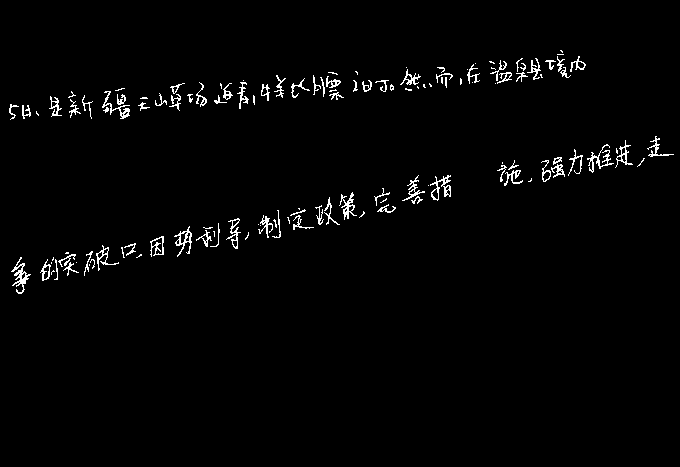 5月、是新疆天山草场返青,牲长膘的日子。然而,在温泉县境内
事的突破口,因势利导,制定政策,完善措施,强力推进,走